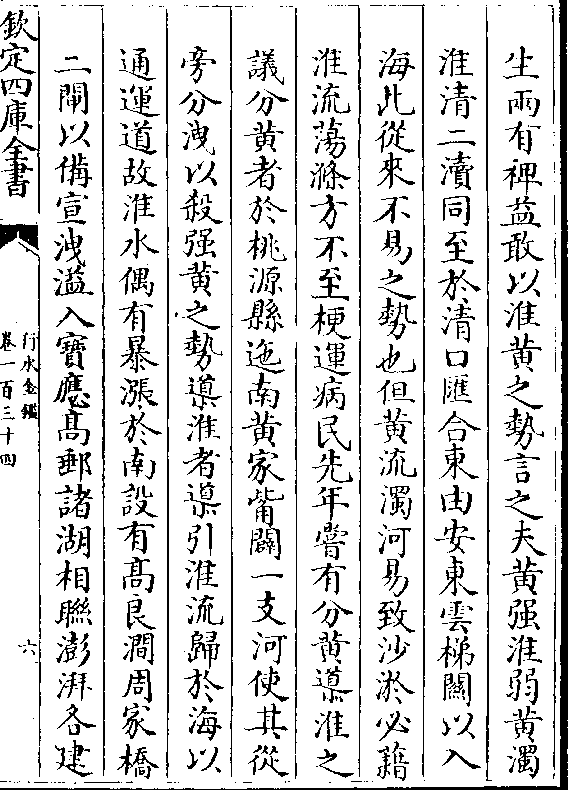 生兩有裨益敢以淮黃之勢言之夫黃强淮弱黃濁
淮清二瀆同至於清口匯合東由安東雲梯關以入
海此從來不易之勢也但黃流濁河易致沙淤必籍
淮流蕩滌方不至梗運病民先年嘗有分黃導淮之
議分黃者於桃源縣迤南黃家觜闢一支河使其從
旁分洩以殺强黃之勢導淮者導引淮流歸於海以
通運道故淮水偶有暴漲於南設有高良澗周家橋
二閘以備宣洩溢入寶應高郵諸湖相聯澎湃各建
欽定四庫全書
行水金鑑
卷一百三十四
六